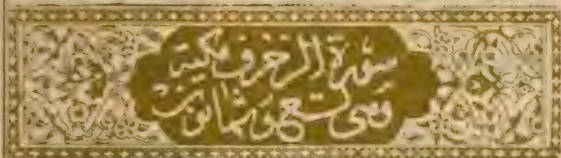 سورة الزخرف مكية
وهى تسع وثمانون